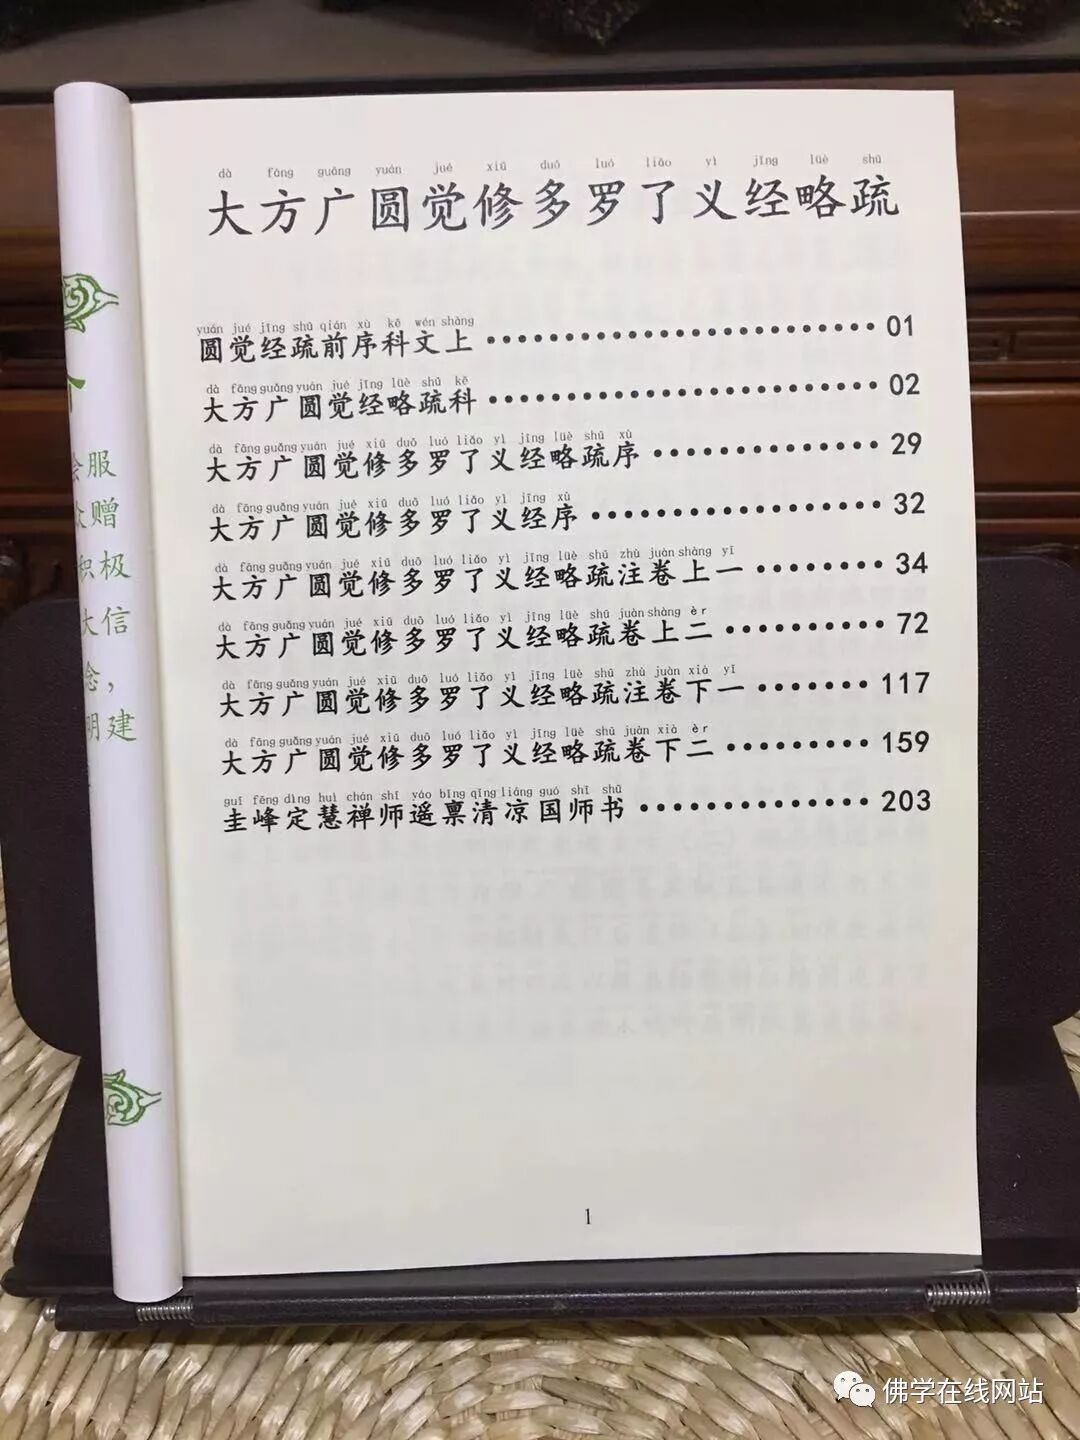 dà fāng guǎng yuán jué xiū duō luó liǎo yì jīng lüè shū
大方广圆觉修多罗了义经略疏
yuán jué jīng shū qián xù kē wén shàng
圆觉经疏前序科文上 01
dà fāng guǎng yuán jué jīng lüè shū kē
大方广圆觉经略疏科 02
dà fāng guǎng yuán jué xiū duō luó liǎo yì jīng lüè shū xù
大方广圆觉修多罗了义经略疏序 29
dà fāng guǎng yuán jué xiū duō luó liǎo yì jīng xù
大方广圆觉修多罗了义经序 32
dà fāng guǎng yuán jué xiū duō luó liǎo yì jīng lüè shū zhù juàn shàng yī
大方广圆觉修多罗了义经略疏注卷上一 34
dà fāng guǎng yuán jué xiū duō luó liǎo yì jīng lüè shū juàn shàng èr
大方广圆觉修多罗了义经略疏卷上二 72
dà fāng guǎng yuán jué xiū duō luó liǎo yì jīng lüè shū zhù juàn xià yī
大方广圆觉修多罗了义经略疏注卷下一 117
dà fāng guǎng yuán jué xiū duō luó liǎo yì jīng lüè shū juàn xià èr
大方广圆觉修多罗了义经略疏卷下二 159
guī fēng dìng huì chán shī yáo bǐng qīng liáng guó shī shū
圭峰定慧禅师遥禀清凉国师书 203
1
服
赠
积极
大信
念，
明建
佛学在线网站